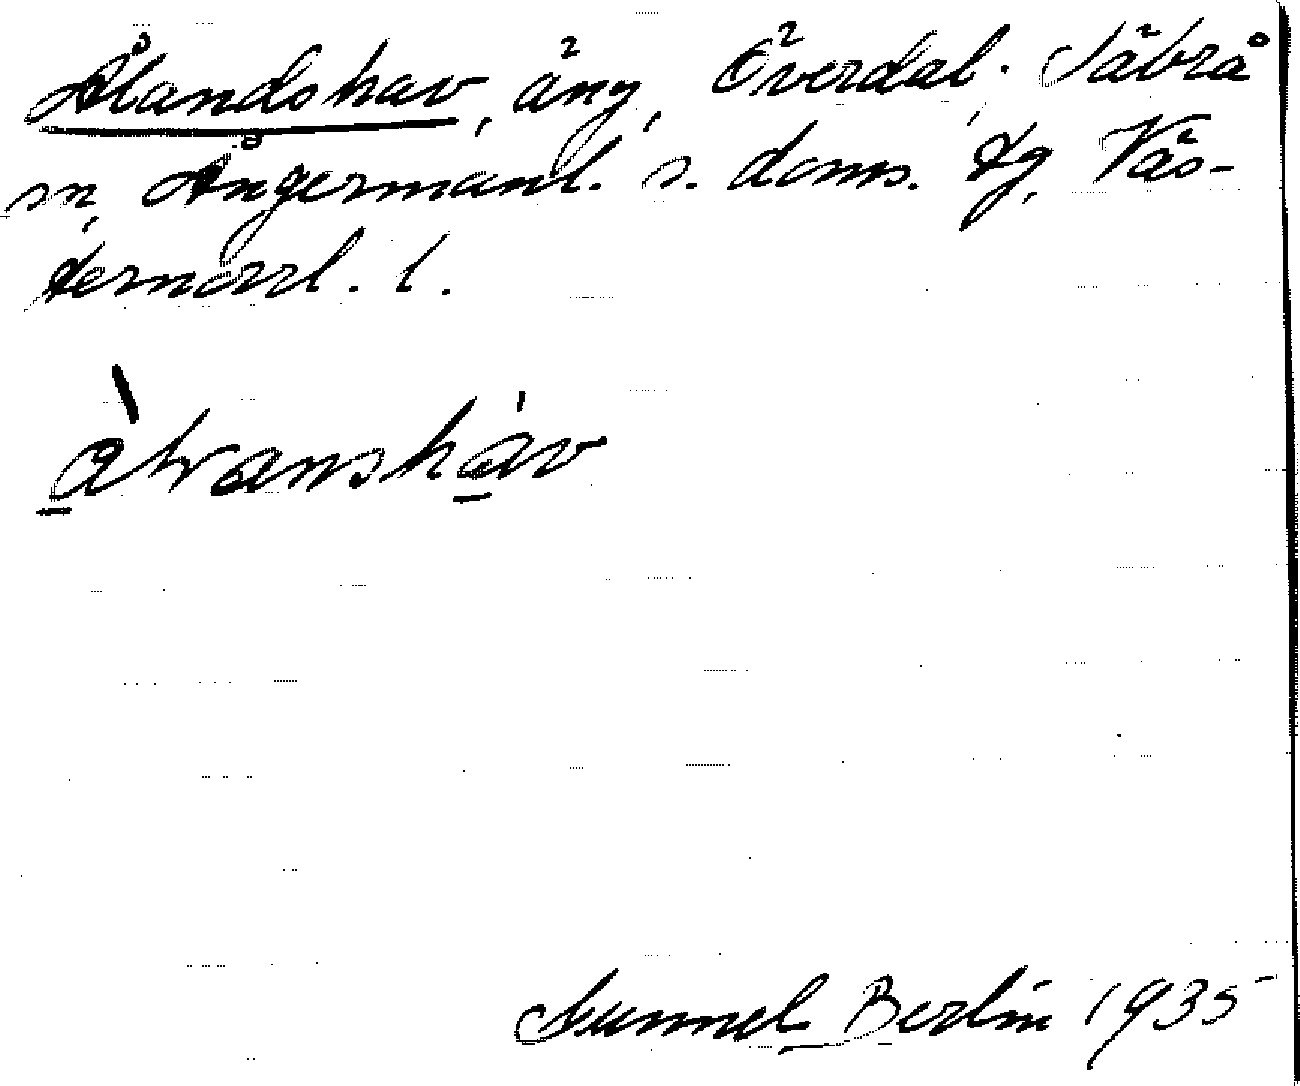 Ålandshav, äng, Överdal. Säbrå
sn, Ångermanl. s. doms. tg, Väs-
ternorrl. l.
Gunnel Berlin 1935